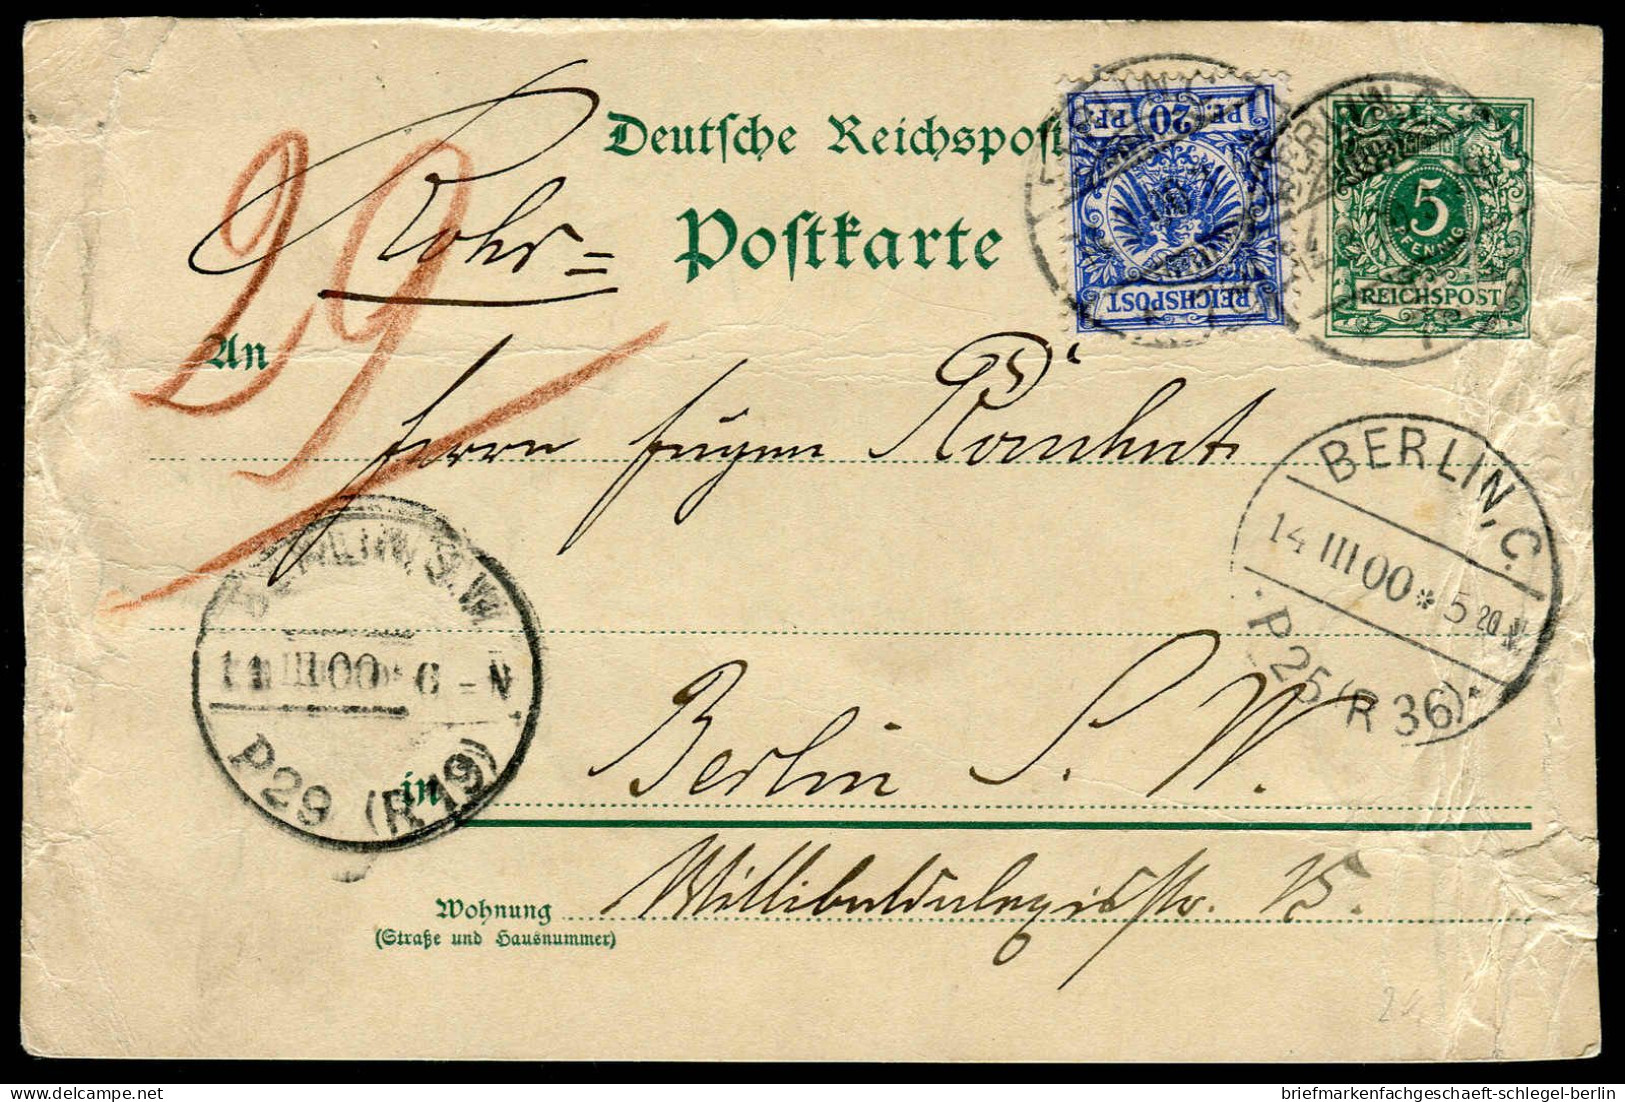 Deutsche Reichspost
Rohr=
Postkarte
29
PF. 20 PF.
REICHSPOST
BERLIN
BERLIN
5
PFENNIG
REICHSPOST
An
Herrn Eugen Kornhut
BERLIN, C.
14 III 00 * 5 20 N
P 25 (R 36)
BERLIN, S.W.
14 III 00 * 6 - N
P 29 (R 19)
in Berlin S. W.
Wohnung Willibaldalexisstr. 15.
(Straße und Hausnummer)
briefmarkenfachgeschaeft-schlegel-berlin